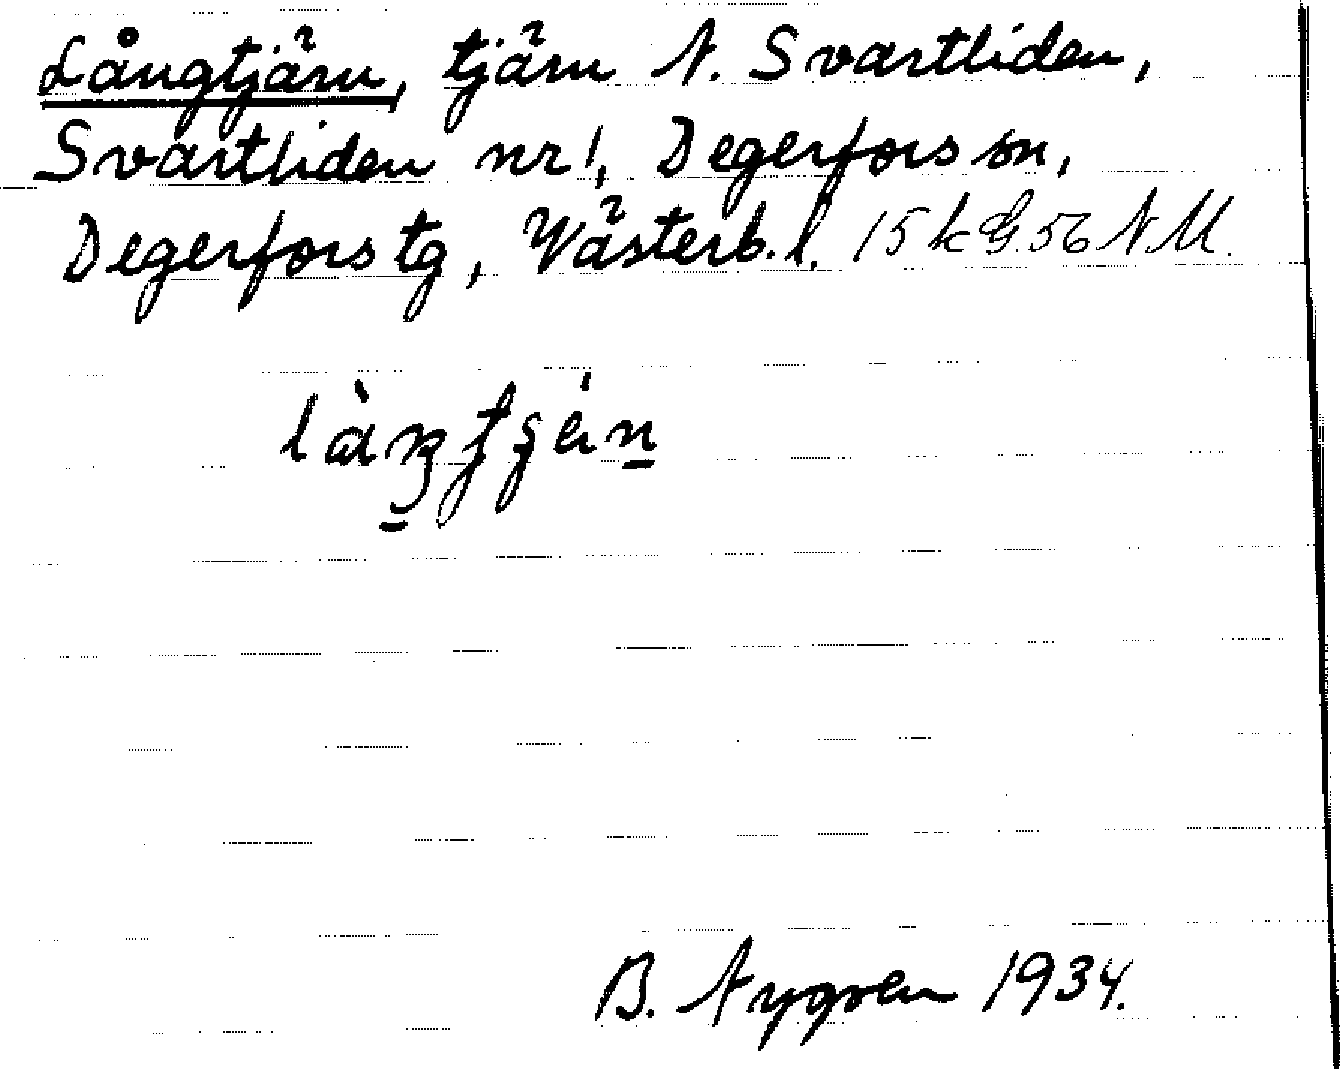 Långtjärn, tjärn N. Svartliden,
Svartliden nr 1, Degerfors sn,
Degerfors tg, Västerb. l. 15 k G. 56 N M.
B. Nygren 1934.